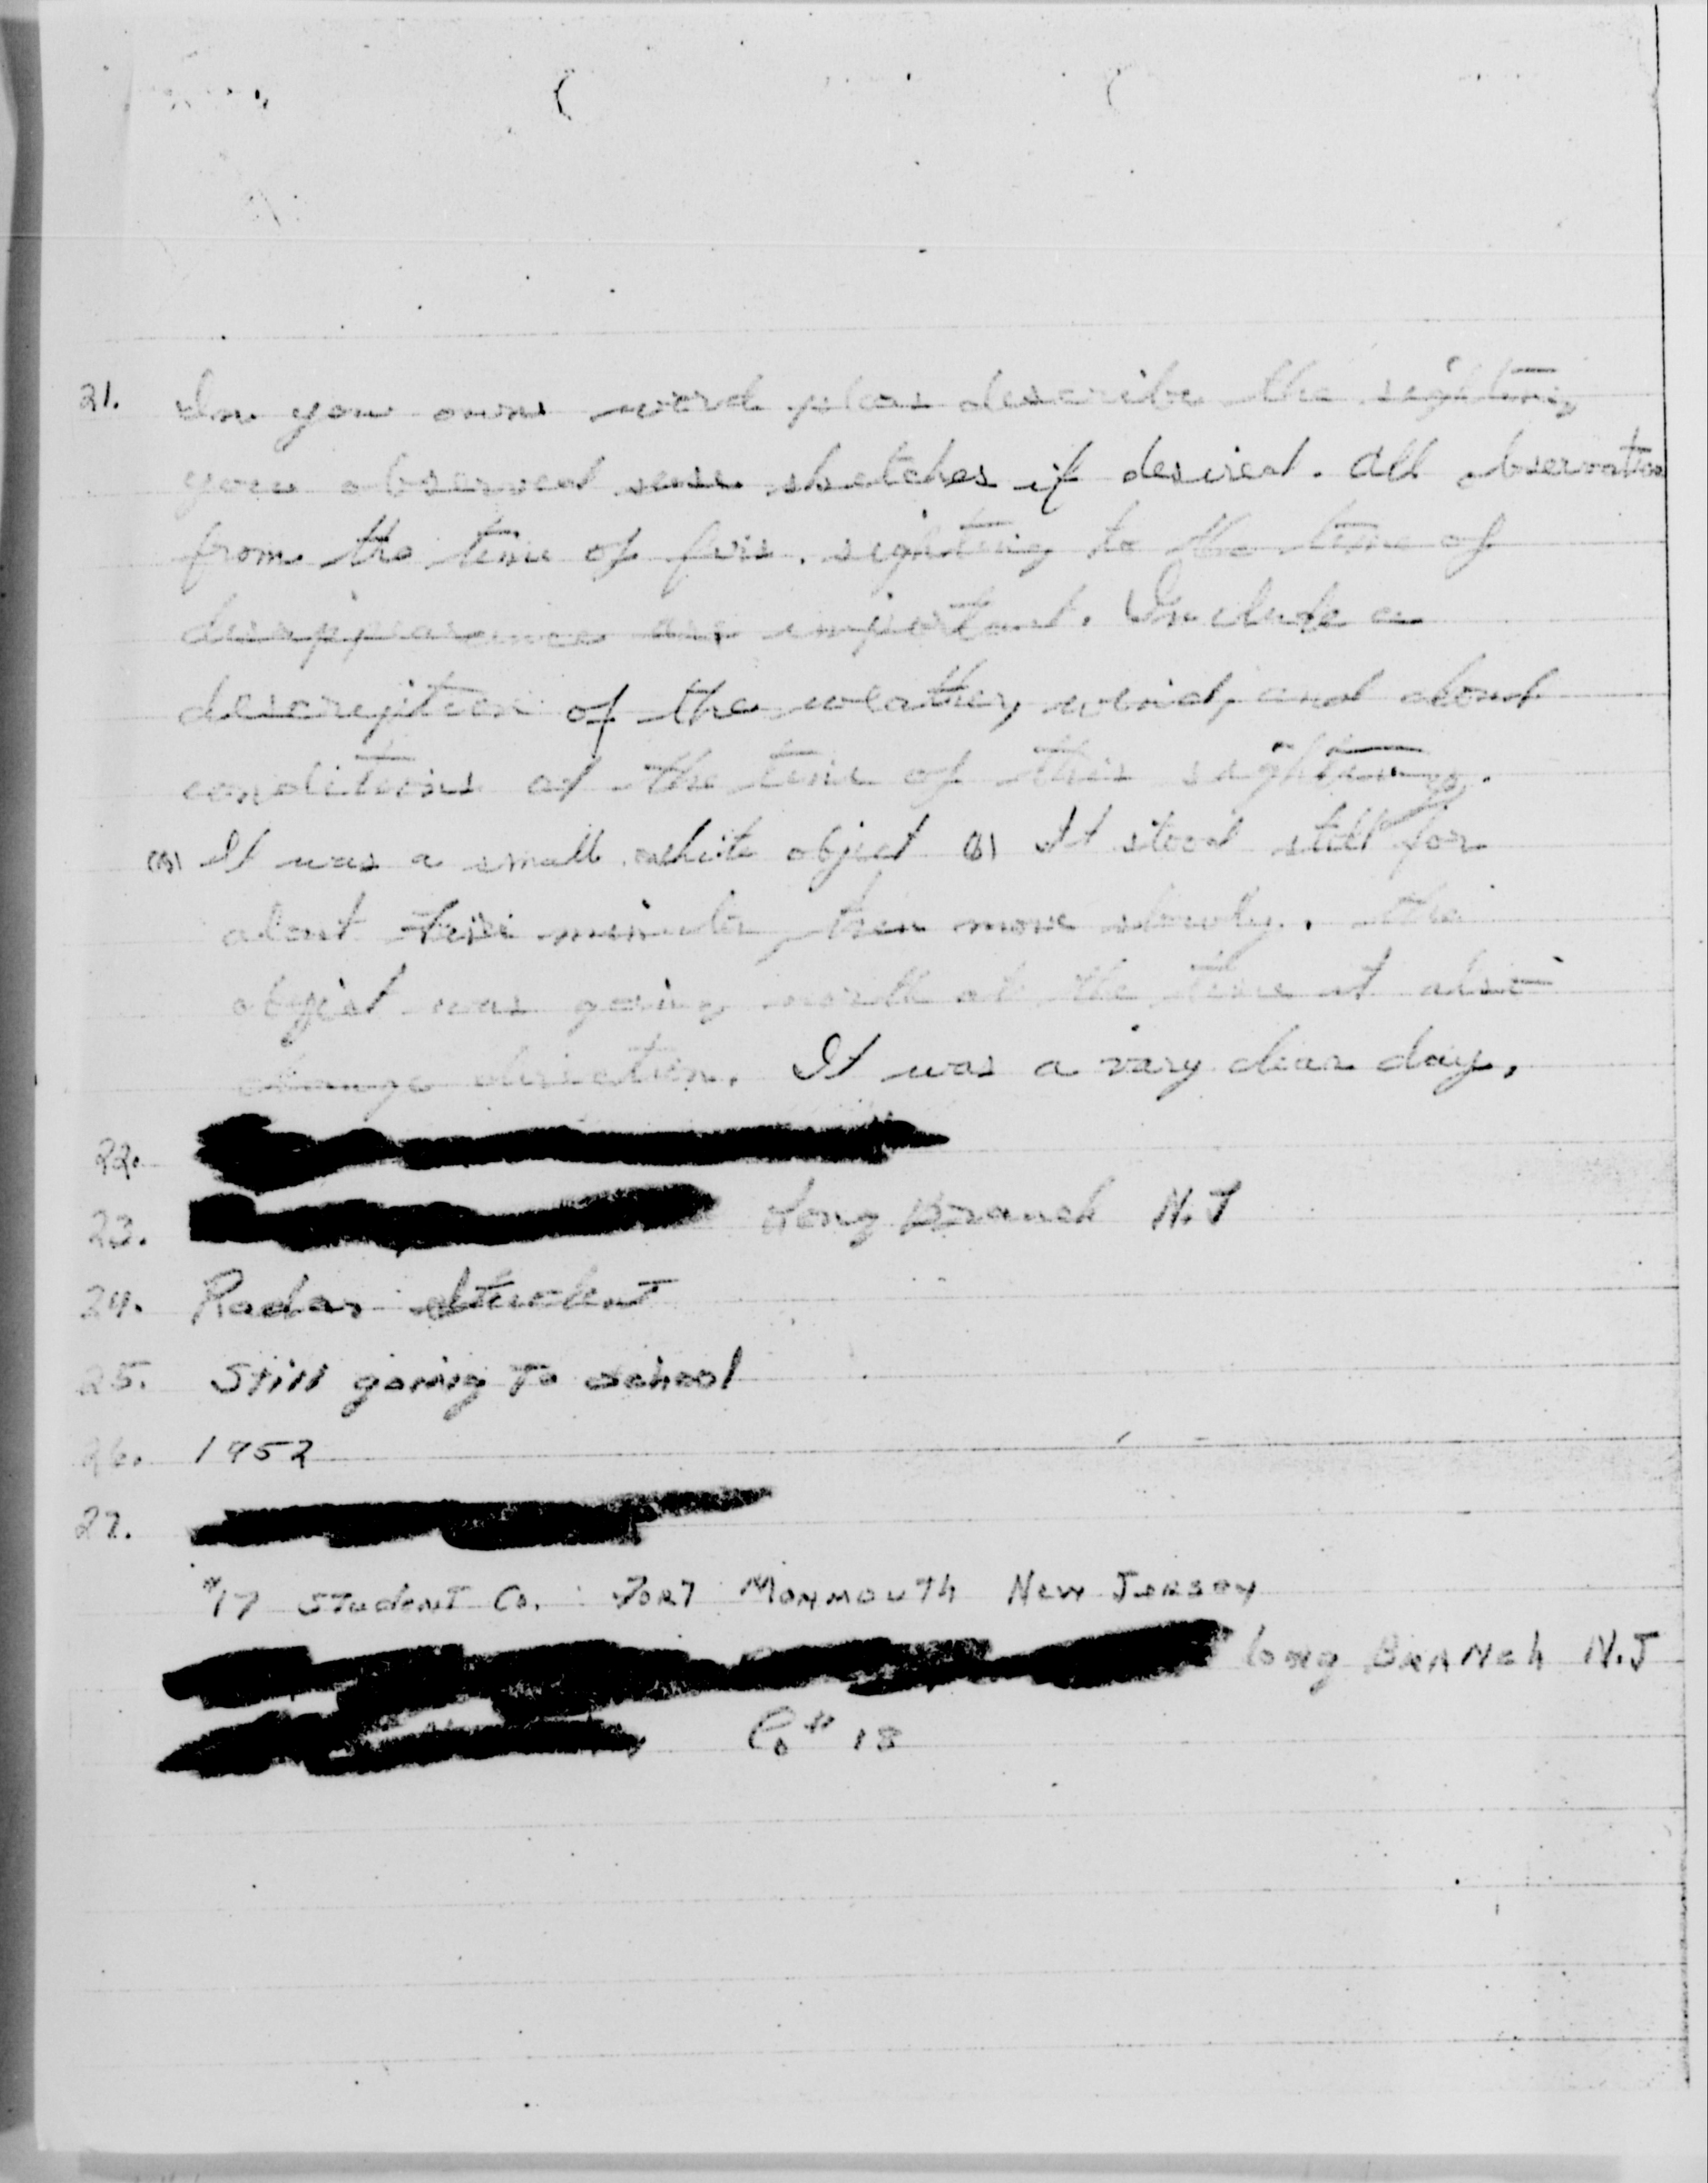 21. In you own word pleas describe the sighting
you observed use sketches if desired. All observation
from the time of firs. sighting to the time of
disappearance are important. Include a
description of the weather, wind, and cloud
conditions at the time of this sighting.
It was a small white object (B) It stood still for
about minute, then move slowly. the
object was going north at the time it also
change direction. It was a vary clear day,
22.
23. Long Branch N.J
24. Radar Student
25. Still going To school
26. 1952
27.
#17 STudenT Co. ForT MonmouTh New Jersey
Long BRANch N.J
Co # 18